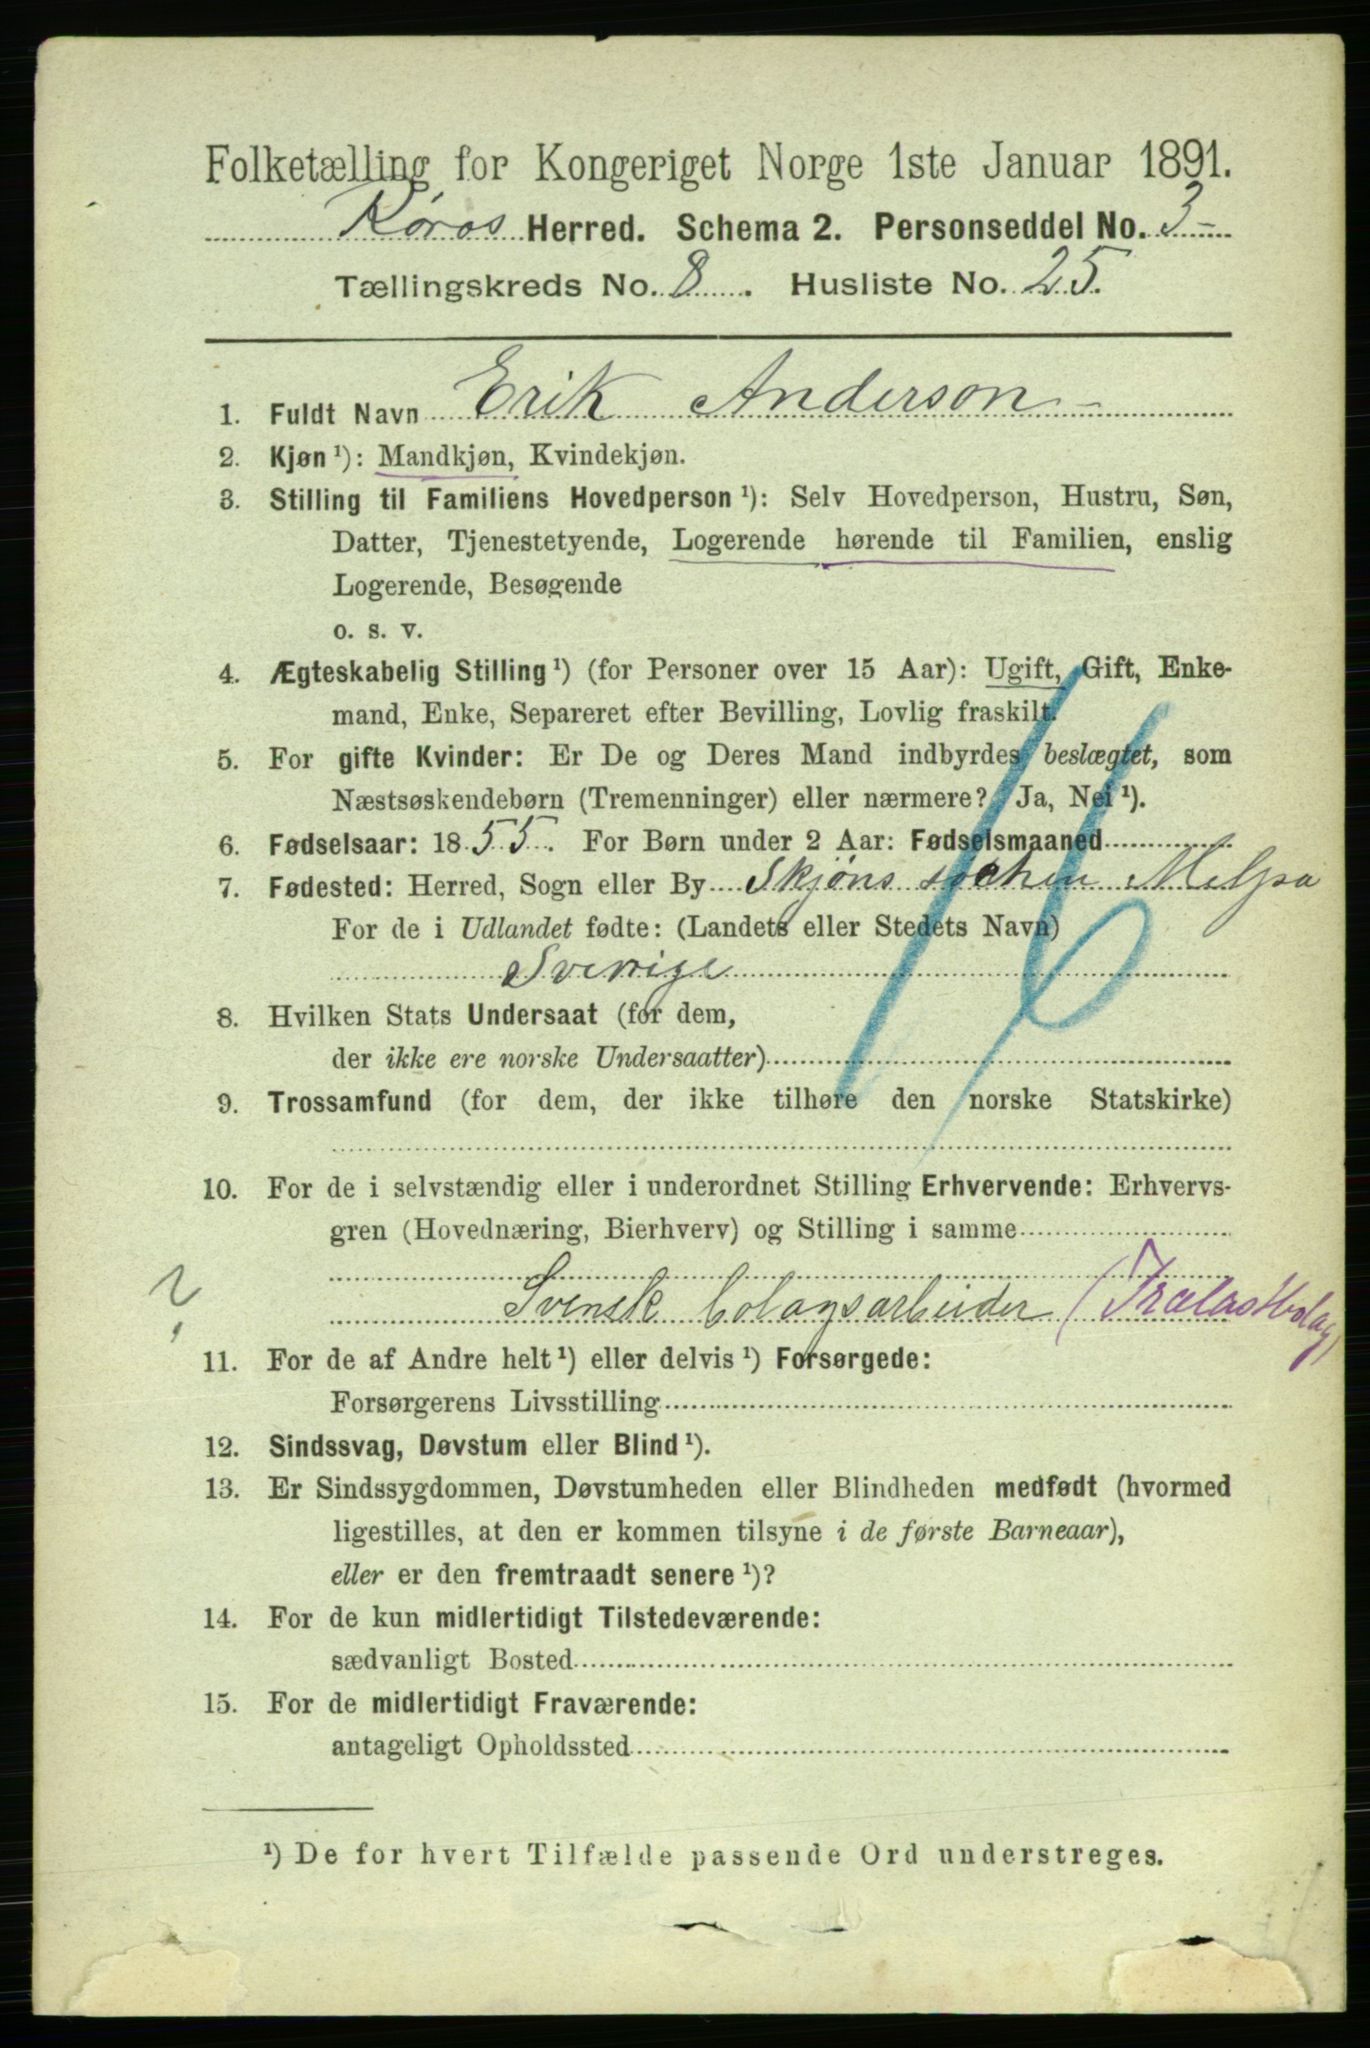 Folketælling for Kongeriget Norge 1ste Januar 1891.
Røros Herred. Schema 2. Personseddel No. 3
Tællingskreds No. 8. Husliste No. 25.
1. Fuldt Navn Erik Anderson
2. Kjøn ¹): Mandkjøn, Kvindekjøn.
3. Stilling til Familiens Hovedperson ¹): Selv Hovedperson, Hustru, Søn,
Datter, Tjenestetyende, Logerende hørende til Familien, enslig
Logerende, Besøgende
o. s. v.
4. Ægteskabelig Stilling ¹) (for Personer over 15 Aar): Ugift, Gift, Enke-
mand, Enke, Separeret efter Bevilling, Lovlig fraskilt.
5. For gifte Kvinder: Er De og Deres Mand indbyrdes beslægtet, som
Næstsøskendebørn (Tremenninger) eller nærmere? Ja, Nei ¹).
6. Fødselsaar: 1855. For Børn under 2 Aar: Fødselsmaaned
7. Fødested: Herred, Sogn eller By Skjöns
For de i Udlandet fødte: (Landets eller Stedets Navn)
Sverrige
16
8. Hvilken Stats Undersaat (for dem,
der ikke ere norske Undersaatter)
9. Trossamfund (for dem, der ikke tilhøre den norske Statskirke)
10. For de i selvstændig eller i underordnet Stilling Erhvervende: Erhvervs-
gren (Hovednæring, Bierhverv) og Stilling i samme
? Svensk bolagsarbeider (Trælastbolag)
11. For de af Andre helt ¹) eller delvis ¹) Forsørgede:
Forsørgerens Livsstilling
12. Sindssvag, Døvstum eller Blind ¹).
13. Er Sindssygdommen, Døvstumheden eller Blindheden medfødt (hvormed
ligestilles, at den er kommen tilsyne i de første Barneaar),
eller er den fremtraadt senere ¹)?
14. For de kun midlertidigt Tilstedeværende:
sædvanligt Bosted
15. For de midlertidigt Fraværende:
antageligt Opholdssted
¹) De for hvert Tilfælde passende Ord understreges.